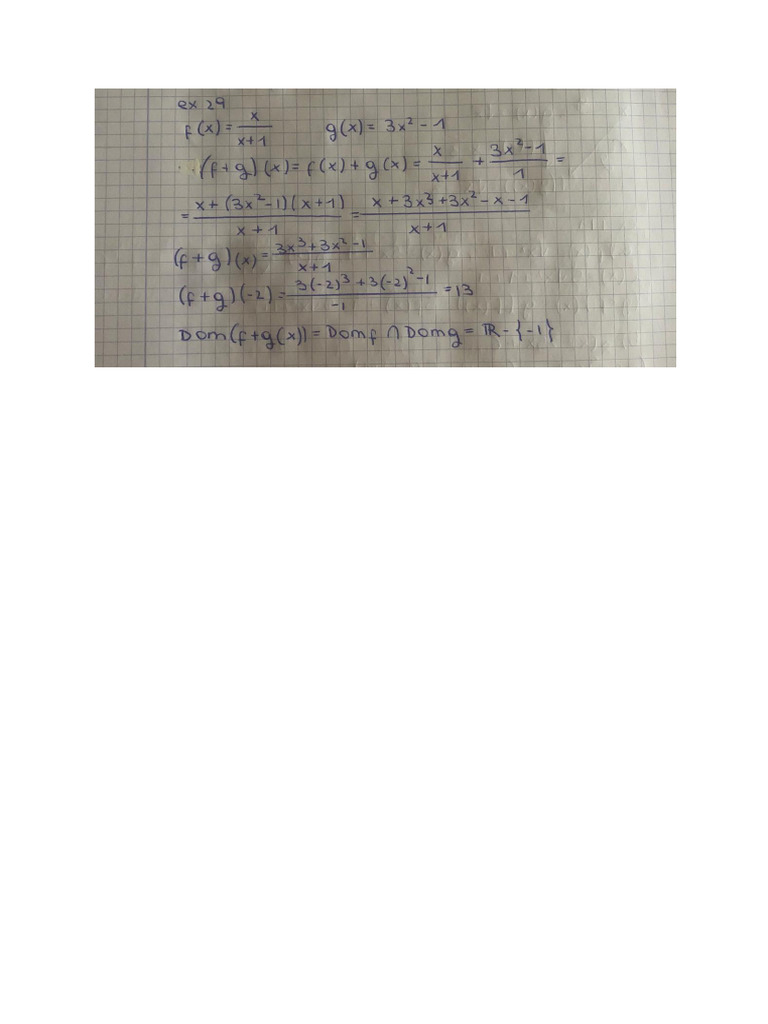 ex 29
f(x) = x/(x+1) g(x) = 3x² - 1
(f+g)(x) = f(x) + g(x) = x/(x+1) + (3x²-1)/1 =
= (x + (3x²-1)(x+1))/(x+1) = (x + 3x³ + 3x² - x - 1)/(x+1)
(f+g)(x) = (3x³+3x²-1)/(x+1)
(f+g)(-2) = (3(-2)³ + 3(-2)² - 1)/(-1) = 13
Dom(f+g(x)) = Domf ∩ Domg = ℝ - {-1}